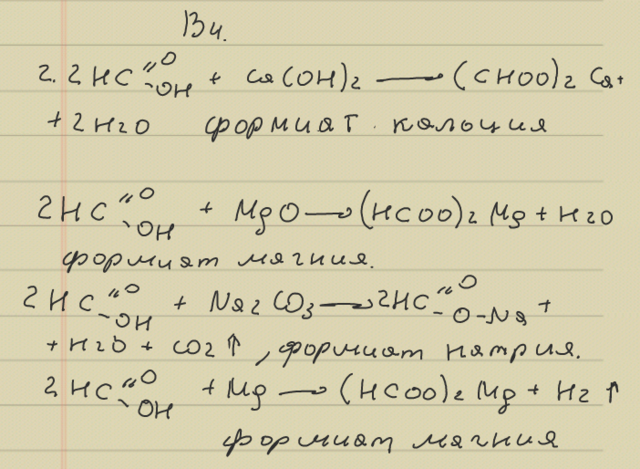 В4.
2. 2HC =O -OH + Ca(OH)2 → (CHOO)2 Ca+
+ 2H2O формиат калоция
2HC =O -OH + MgO → (HCOO)2 Mg + H2O
формиат магния.
2HC =O -OH + Na2CO3 → 2HC =O -O-Na +
+ H2O + CO2↑, формиат натрия.
2HC =O -OH + Mg → (HCOO)2 Mg + H2↑
формиат магния